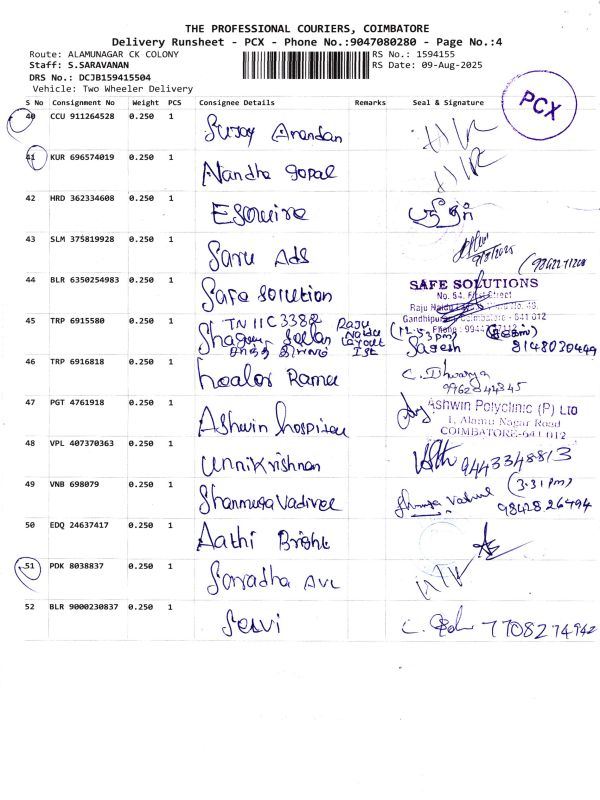 THE PROFESSIONAL COURIERS, COIMBATORE
Delivery Runsheet - PCX - Phone No.:9047080280 - Page No.:4
Route: ALAMUNAGAR CK COLONY RS No.: 1594155
Staff: S.SARAVANAN RS Date: 09-Aug-2025
DRS No.: DCJB159415504
Vehicle: Two Wheeler Delivery
PCX
S No Consignment No Weight PCS Consignee Details Remarks Seal & Signature
40 CCU 911264528 0.250 1 Anandan
41 KUR 696574019 0.250 1 Nandha gopal
42 HRD 362334608 0.250 1 Esquire
43 SLM 375819928 0.250 1 Saru Ads
9/8/2025
44 BLR 6350254983 0.250 1 Safe solution SAFE SOLUTIONS
No. 54, First Street
45 TRP 6915580 0.250 1 TN 11C 3382 Raju Naidu Layout Ist
(12.53pm)
Sagesh 8148030499
46 TRP 6916818 0.250 1 Ramu
9962844345
47 PGT 4761918 0.250 1 Ashwin hospital Ashwin Polyclinic (P) LTD
1, Alamu Nagar Road
COIMBATORE-641 012
48 VPL 407370363 1 0.250 Unnikrishnan 9443348813
49 VNB 698079 0.250 1 Shanmuga Vadivel (3.31pm)
9842826494
50 EDQ 24637417 0.250 1 Aathi Bright
51 PDK 8038837 0.250 1 Sarradha Ave
52 BLR 9000230837 0.250 1 Selvi 7708274942